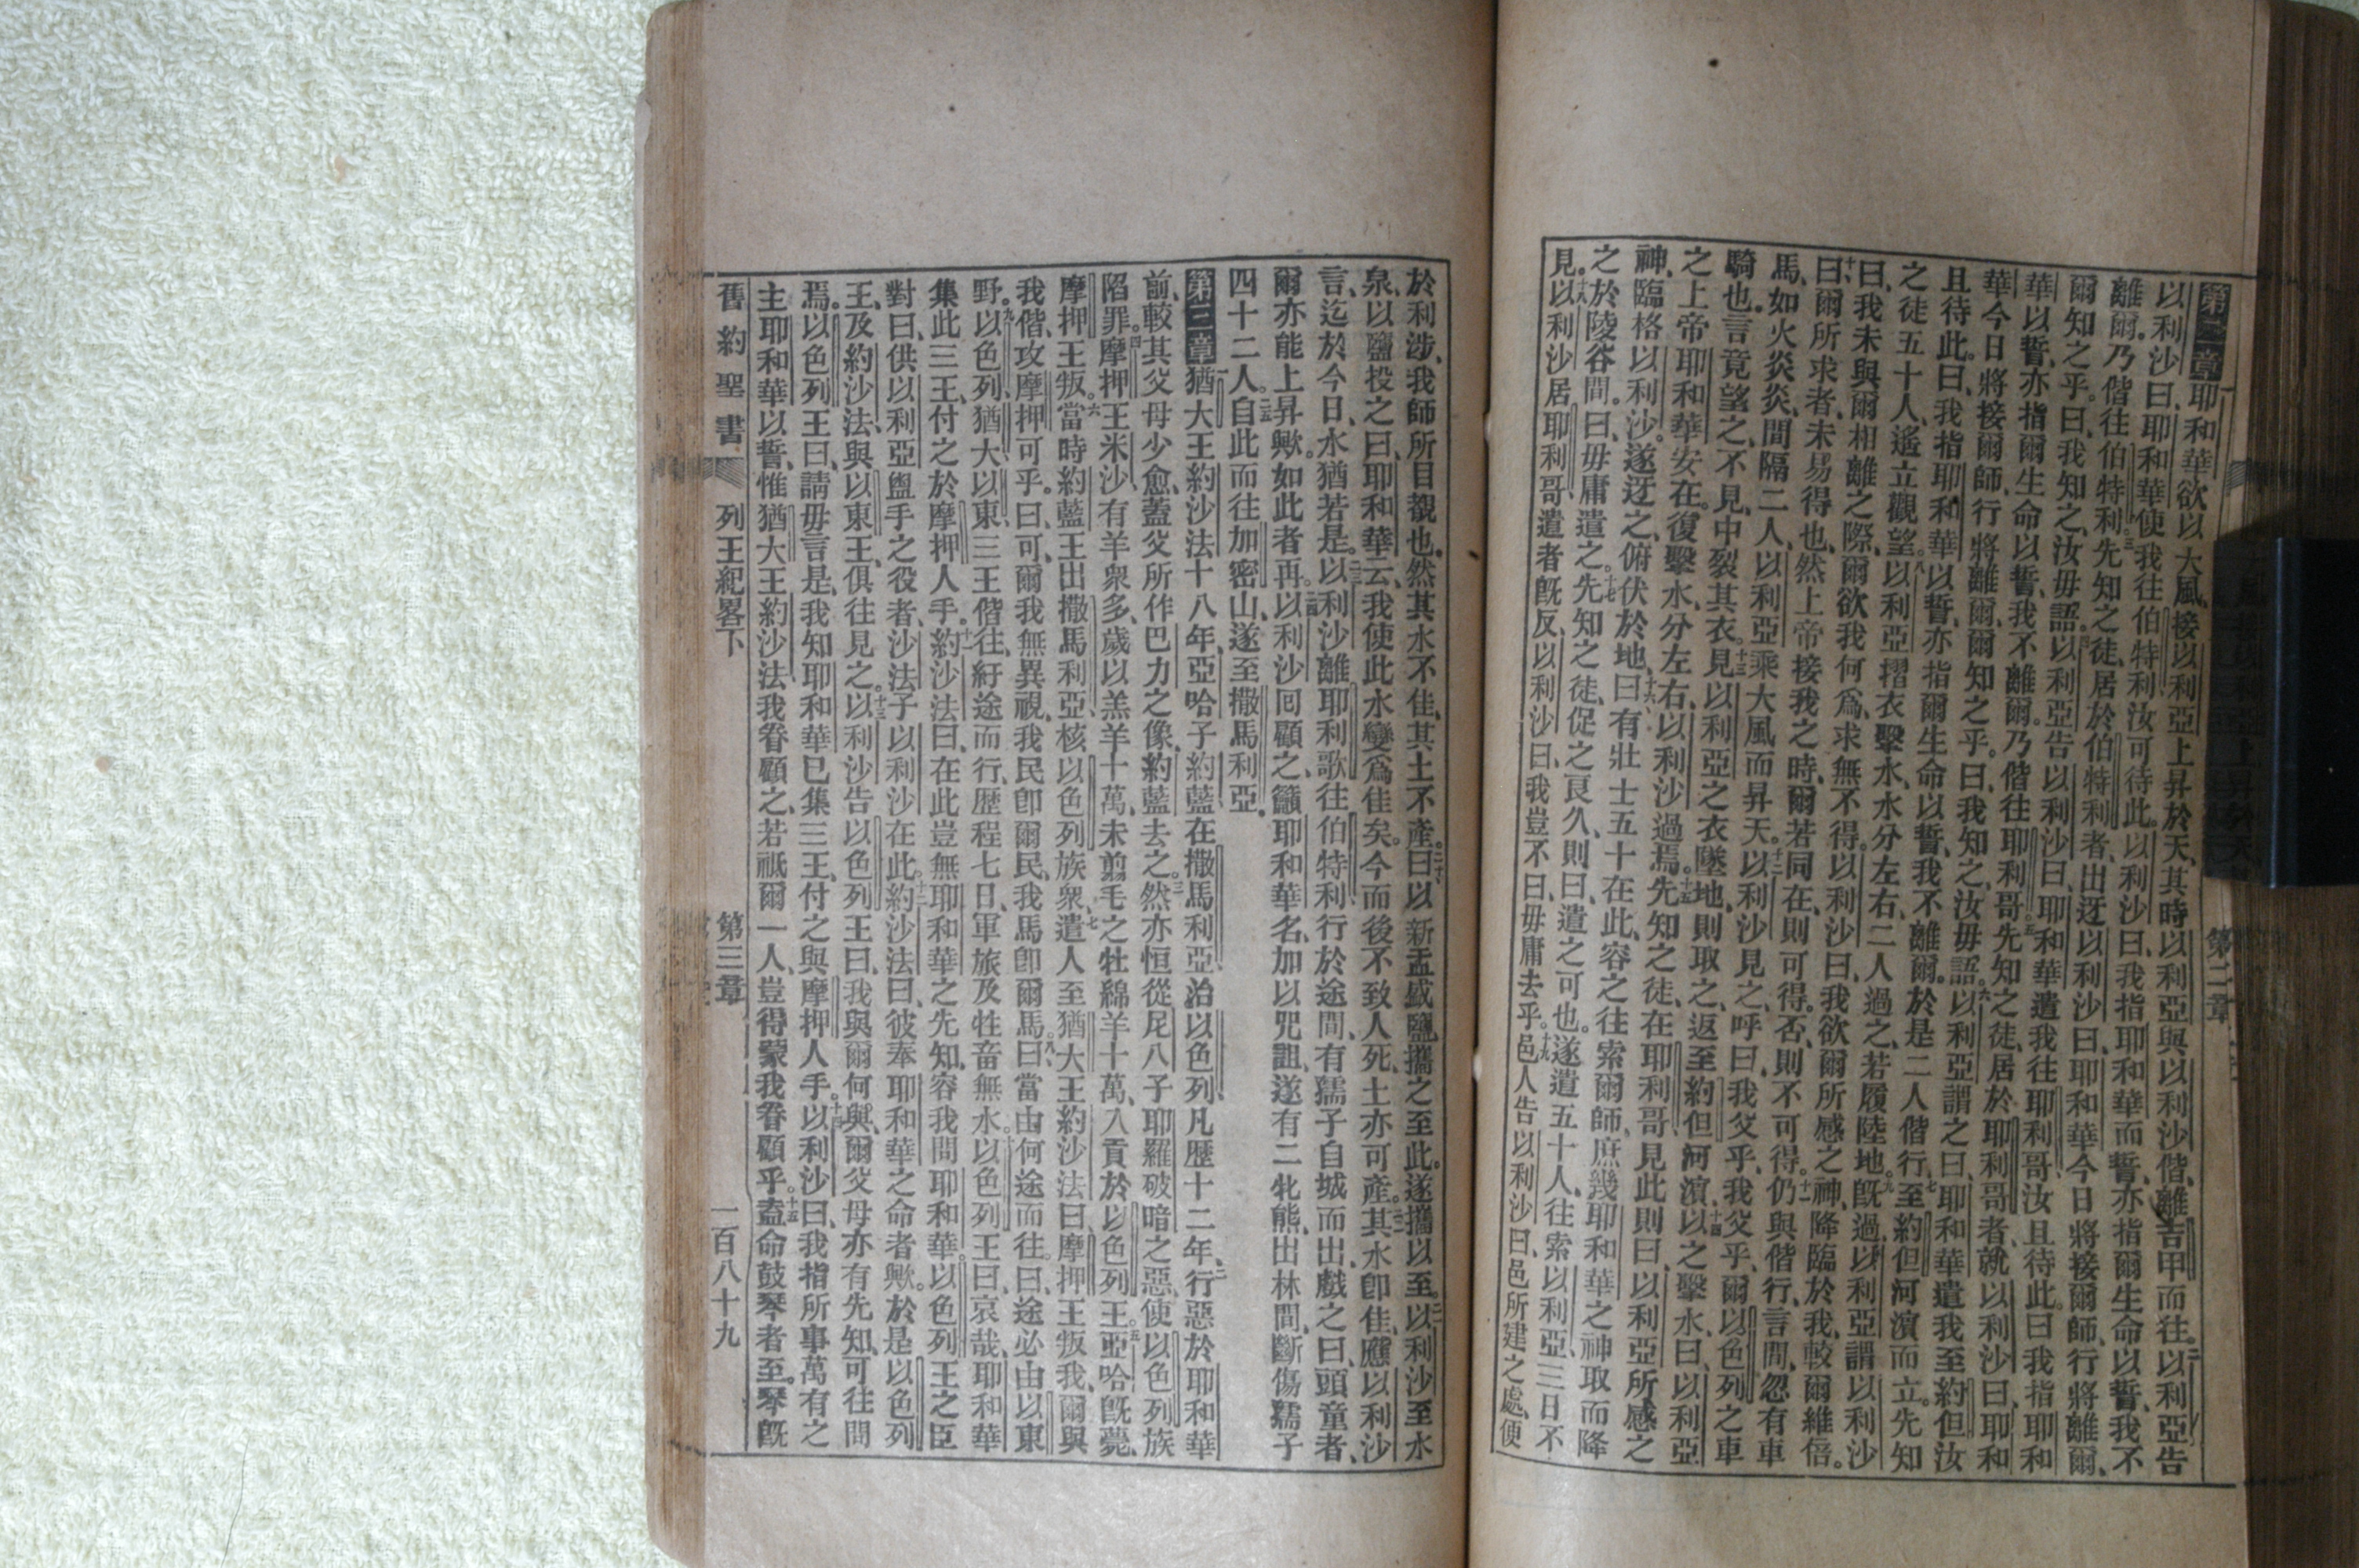 第二章 耶和華欲以大風、接以利亞上昇於天、其時以利亞與以利沙偕、離吉甲而往。二以利亞告
以利沙曰、耶和華使我往伯特利、汝可待此。以利沙曰、我指耶和華而誓、亦指爾生命以誓、我不
離爾。乃偕往伯特利。三先知之徒、居於伯特利者、出迓以利沙曰、耶和華今日將接爾師、行將離爾、
爾知之乎。曰、我知之、汝毋語。四以利亞告以利沙曰、耶和華遣我往耶利哥、汝且待此。曰我指耶和
華以誓、亦指爾生命以誓、我不離爾。乃偕往耶利哥。五先知之徒、居於耶利哥者、就以利沙曰、耶和
華今日將接爾師、行將離爾、爾知之乎。曰、我知之、汝毋語。六以利亞謂之曰、耶和華遣我至約但、汝
且待此。曰、我指耶和華以誓、亦指爾生命以誓、我不離爾。於是二人偕行、七至約但河濱而立。先知
之徒五十人、遙立觀望。八以利亞摺衣擊水、水分左右、二人過之、若履陸地。九旣過、以利亞謂以利沙
曰、我未與爾相離之際、爾欲我何爲、求無不得。以利沙曰、我欲爾所感之神、降臨於我、較爾維倍。
十曰、爾所求者、未易得也、然上帝接我之時、爾若同在、則可得、否則不可得。十一仍與偕行、言間、忽有車
馬、如火炎炎、間隔二人、以利亞乘大風而昇天。十二以利沙見之、呼曰、我父乎、我父乎、爾以色列之車
騎也、言竟望之、不見、中裂其衣。十三見以利亞之衣墜地、則取之、返至約但河濱、十四以之擊水、曰、以利亞
之上帝耶和華安在、復擊水、分左右、以利沙過焉。十五先知之徒、在耶利哥見此、則曰、以利亞所感之
神、臨格以利沙。遂迓之、俯伏於地、十六曰、有壯士五十在此、容之往索爾師、庶幾耶和華之神取而降
之於陵谷間。曰、毋庸遣之。十七先知之徒、促之良久、則曰、遣之可也。遂遣五十人、往索以利亞、三日不
見。十八以利沙居耶利哥、遣者旣反、以利沙曰、我豈不曰、毋庸去乎。十九邑人告以利沙曰、邑所建之處、便
第二章
於利涉、我師所目覩也、然其水不佳、其土不產。二十曰、以新盂盛鹽、攜之至此。遂攜以至。二一以利沙至水
泉、以鹽投之、曰、耶和華云、我使此水變爲佳矣。今而後不致人死、土亦可產。二二其水卽佳、應以利沙
言、迄於今日、水猶若是。二三以利沙離耶利歌、往伯特利、行於途間、有孺子自城而出、戲之曰、頭童者、
爾亦能上昇歟。如此者再。二四以利沙回顧之、籲耶和華名、加以咒詛、遂有二牝熊、出林間、斷傷孺子
四十二人。二五自此而往加密山、遂至撒馬利亞。
第三章 一猶大王約沙法十八年、亞哈子約藍、在撒馬利亞、治以色列、凡歷十二年、二行惡於耶和華
前、較其父母少愈、蓋父所作巴力之像、約藍去之。三然亦恒從尼八子耶羅破暗之惡、使以色列族
陷罪。四摩押王米沙、有羊衆多、歲以羔羊十萬、未翦毛之牡綿羊十萬、入貢於以色列王。五亞哈旣薨、
摩押王叛。六當時約藍王出撒馬利亞、核以色列族衆、七遣人至猶大王約沙法曰、摩押王叛我、爾與
我偕攻摩押可乎。曰、可、爾我無異視、我民卽爾民、我馬卽爾馬。八曰、當由何途而往。曰、途必由以東
野。九以色列、猶大、以東三王偕往、紆途而行、歷程七日、軍旅及牲畜無水。十以色列王曰、哀哉、耶和華
集此三王、付之於摩押人手。十一約沙法曰、在此豈無耶和華之先知、容我問耶和華。以色列王之臣
對曰、供以利亞盥手之役者、沙法子以利沙在此。十二約沙法曰、彼奉耶和華之命者歟。於是以色列
王、及約沙法、與以東王、俱往見之。十三以利沙告以色列王曰、我與爾何與、爾父母亦有先知、可往問
焉。以色列王曰、請毋言是、我知耶和華已集三王、付之與摩押人手。十四以利沙曰、我指所事萬有之
主耶和華以誓、惟猶大王約沙法、我眷顧之、若祗爾一人、豈得蒙我眷顧乎。十五盍命鼓琴者至。琴旣
舊約聖書 列王紀畧下 第三章 二百八十九